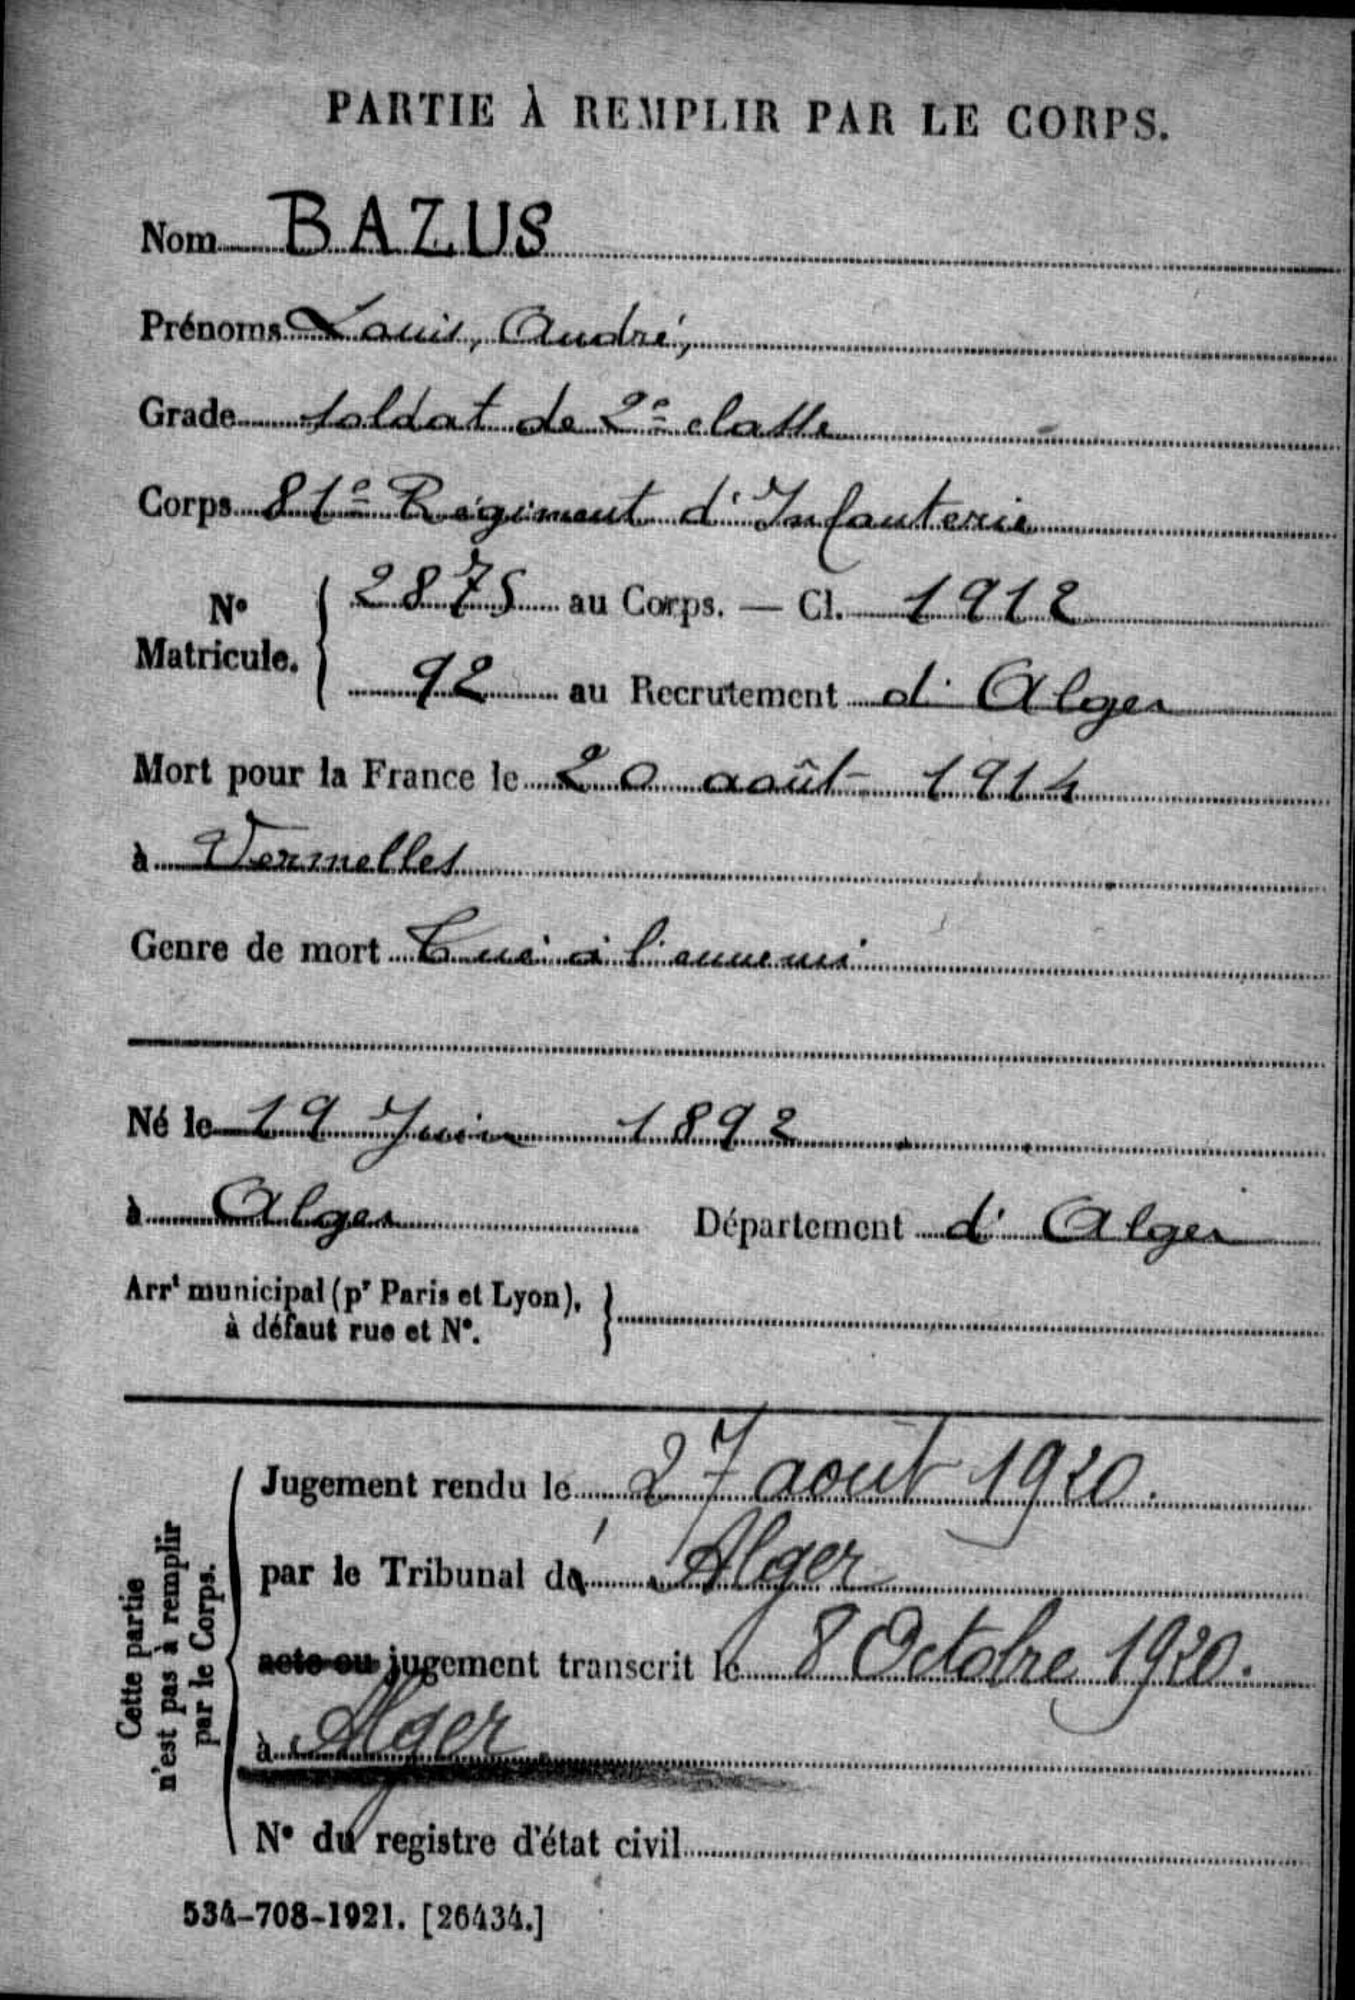 PARTIE À REMPLIR PAR LE CORPS.
Nom BAZUS
Prénoms Louis, André,
Grade soldat de 2e classe
Corps 81e Régiment d'Infanterie
No Matricule. { 2875 au Corps. — Cl. 1912
92 au Recrutement d'Alger
Mort pour la France le 20 août 1914
à Vermelles
Genre de mort Tué à l'ennemi
Né le 19 Juin 1892
à Alger Département d'Alger
Arrt municipal (pr Paris et Lyon), }
à défaut rue et No.
Cette partie
n'est pas à remplir
par le Corps.
Jugement rendu le 27 août 1920.
par le Tribunal d' Alger
acte ou jugement transcrit le 8 Octobre 1920.
à Alger
No du registre d'état civil
534-708-1921. [26434.]